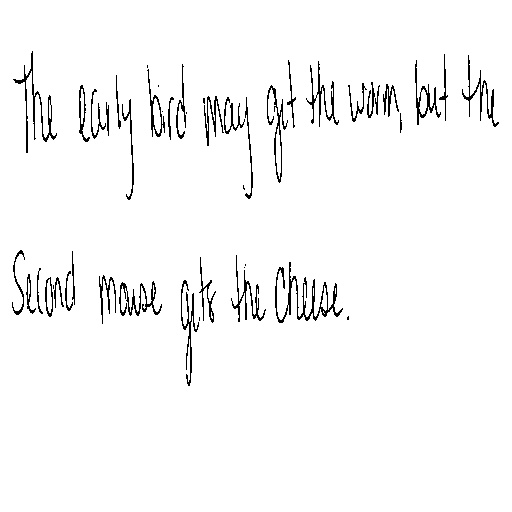 The early bird may get the worm, but the
Second mouse gets the Cheese.